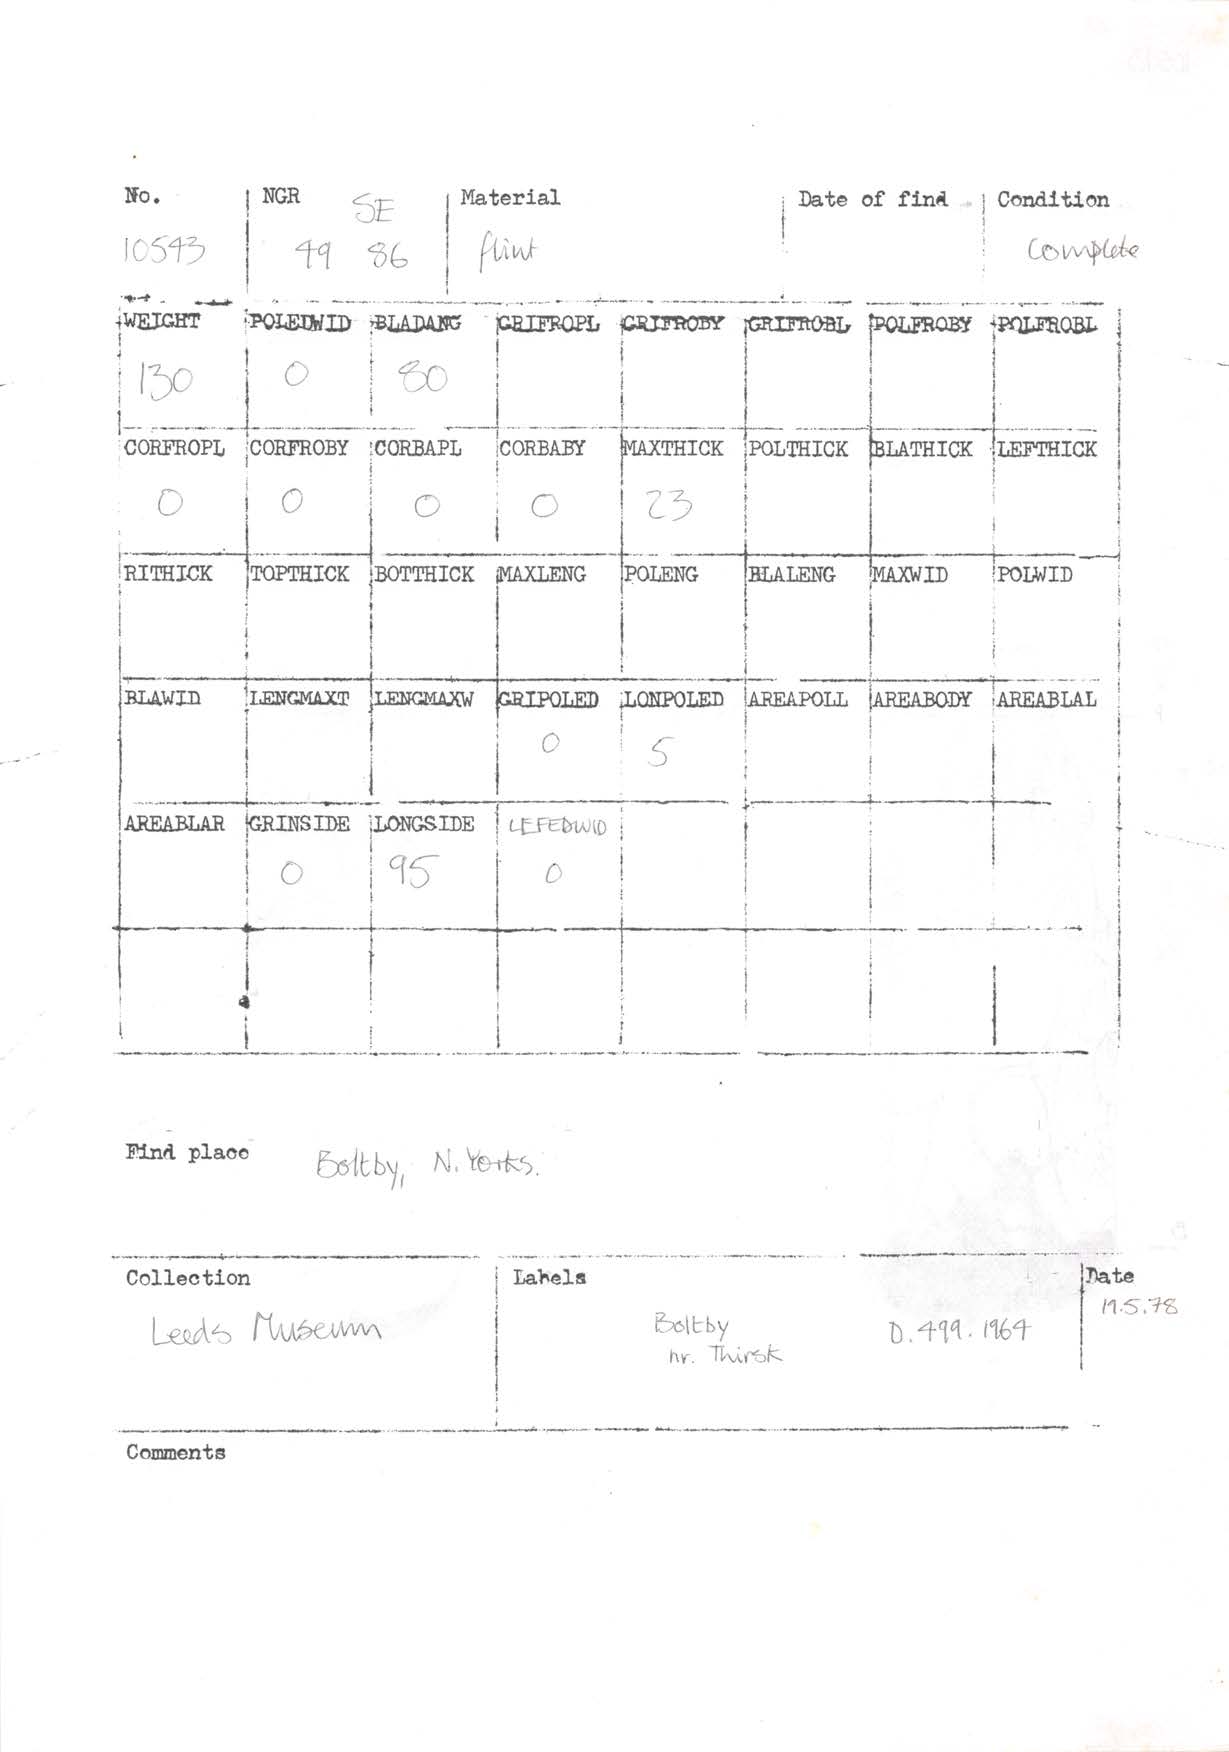 No. NGR SE Material Date of find Condition
10543 49 86 flint Complete
WEIGHT POLEDWID BLADANG GRIFROPL GRIFROBY GRIFROBL POLFROBY POLFROBL
130 0 80
CORFROPL CORFROBY CORBAPL CORBABY MAXTHICK POLTHICK BLATHICK LEFTHICK
0 0 0 0 23
RITHICK TOPTHICK BOTTHICK MAXLENG POLENG BLALENG MAXWID POLWID
BLAWID LENGMAXT LENGMAXW GRIPOLED LONPOLED AREAPOLL AREABODY AREABLAL
0 5
AREABLAR GRINSIDE LONGSIDE LEFEDWID
0 95 0
Find place Boltby, N. Yorks.
Collection Labels Date
Leeds Museum Boltby D.499.1964 19.5.78
nr. Thirsk
Comments